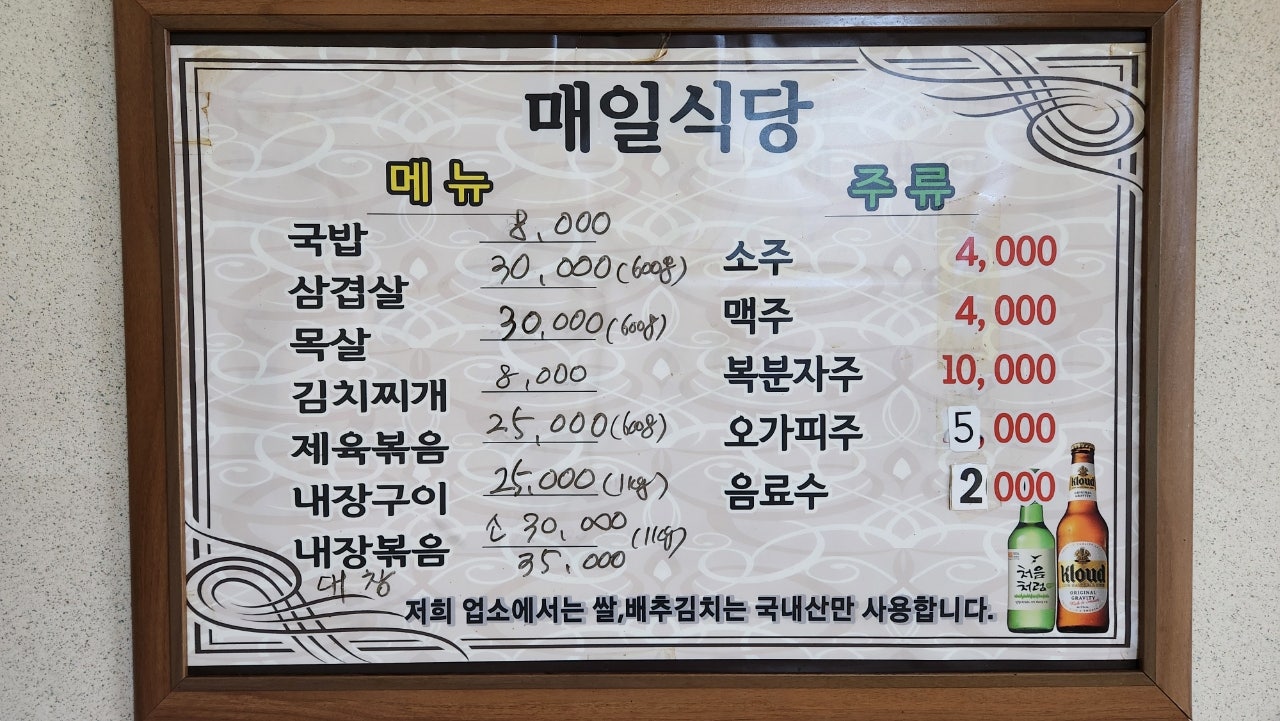 매일식당
메뉴
국밥 8,000
삼겹살 30,000(600g)
목살 30,000(600g)
김치찌개 8,000
제육볶음 25,000(600g)
내장구이 25,000(1kg)
내장볶음 소 30,000 (1kg)
대창 35,000
주류
소주 4,000
맥주 4,000
복분자주 10,000
오가피주 5,000
음료수 2 000
저희 업소에서는 쌀,배추김치는 국내산만 사용합니다.
처음
처럼
Kloud
Kloud
ORIGINAL
GRAVITY